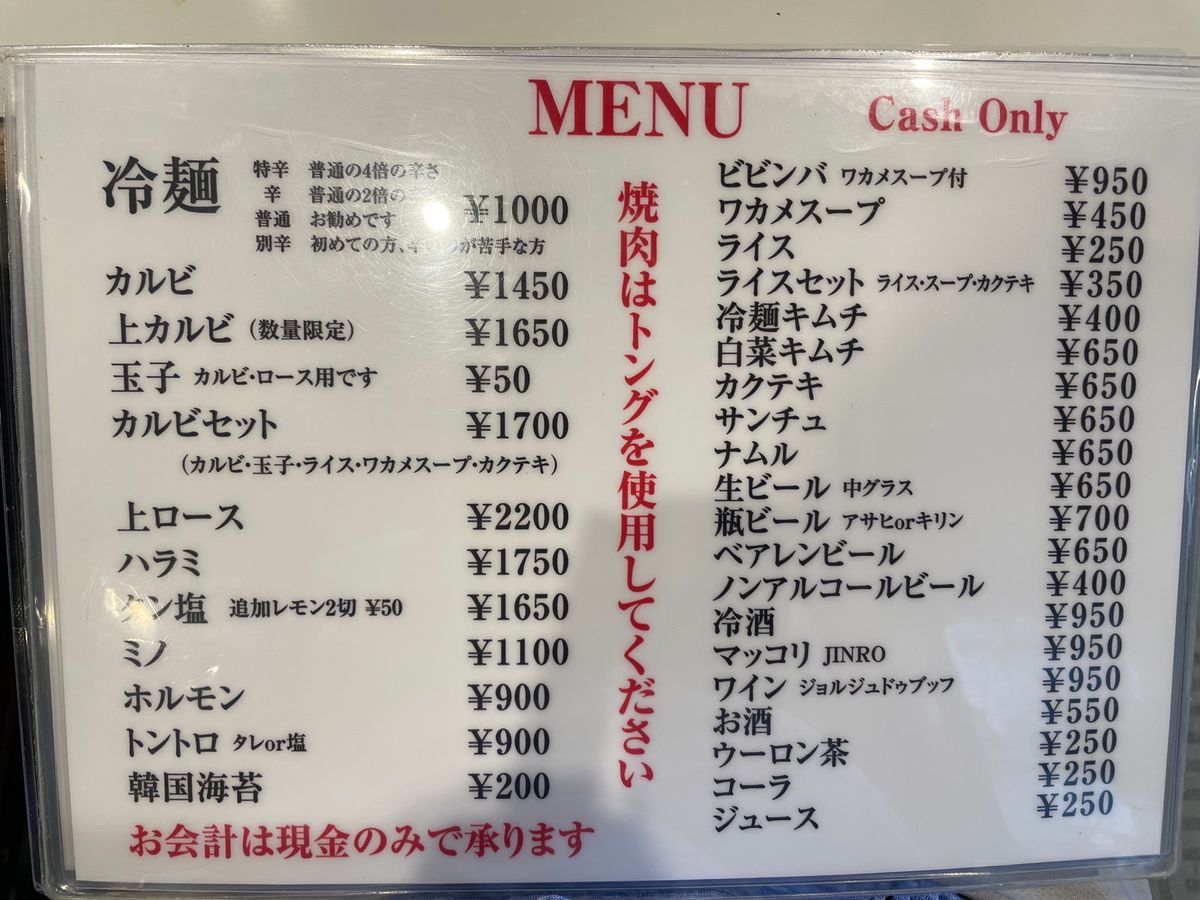 MENU
Cash Only
冷麺 ¥1000
特辛 普通の4倍の辛さ
辛 普通の2倍の
普通 お勧めです
別辛 初めての方、辛いのが苦手な方
カルビ ¥1450
上カルビ (数量限定) ¥1650
玉子 カルビ・ロース用です ¥50
カルビセット ¥1700
(カルビ・玉子・ライス・ワカメスープ・カクテキ)
上ロース ¥2200
ハラミ ¥1750
タン塩 追加レモン2切 ¥50 ¥1650
ミノ ¥1100
ホルモン ¥900
トントロ タレor塩 ¥900
韓国海苔 ¥200
お会計は現金のみで承ります
焼肉はトングを使用してください
ビビンバ ワカメスープ付 ¥950
ワカメスープ ¥450
ライス ¥250
ライスセット ライス・スープ・カクテキ ¥350
冷麺キムチ ¥400
白菜キムチ ¥650
カクテキ ¥650
サンチュ ¥650
ナムル ¥650
生ビール 中グラス ¥650
瓶ビール アサヒorキリン ¥700
ベアレンビール ¥650
ノンアルコールビール ¥400
冷酒 ¥950
マッコリ JINRO ¥950
ワイン ジョルジュドゥブッフ ¥950
お酒 ¥550
ウーロン茶 ¥250
コーラ ¥250
ジュース ¥250